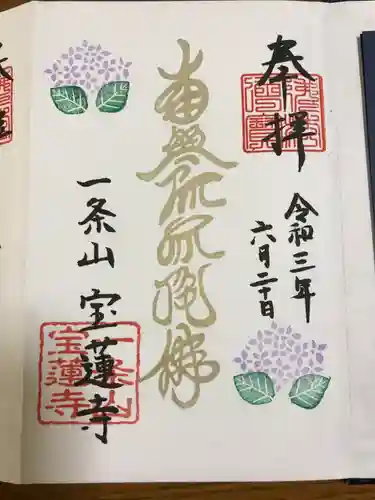 奉拝
令和三年
六月二十日
南無阿弥陀佛
一条山 宝蓮寺
一条山
宝蓮寺